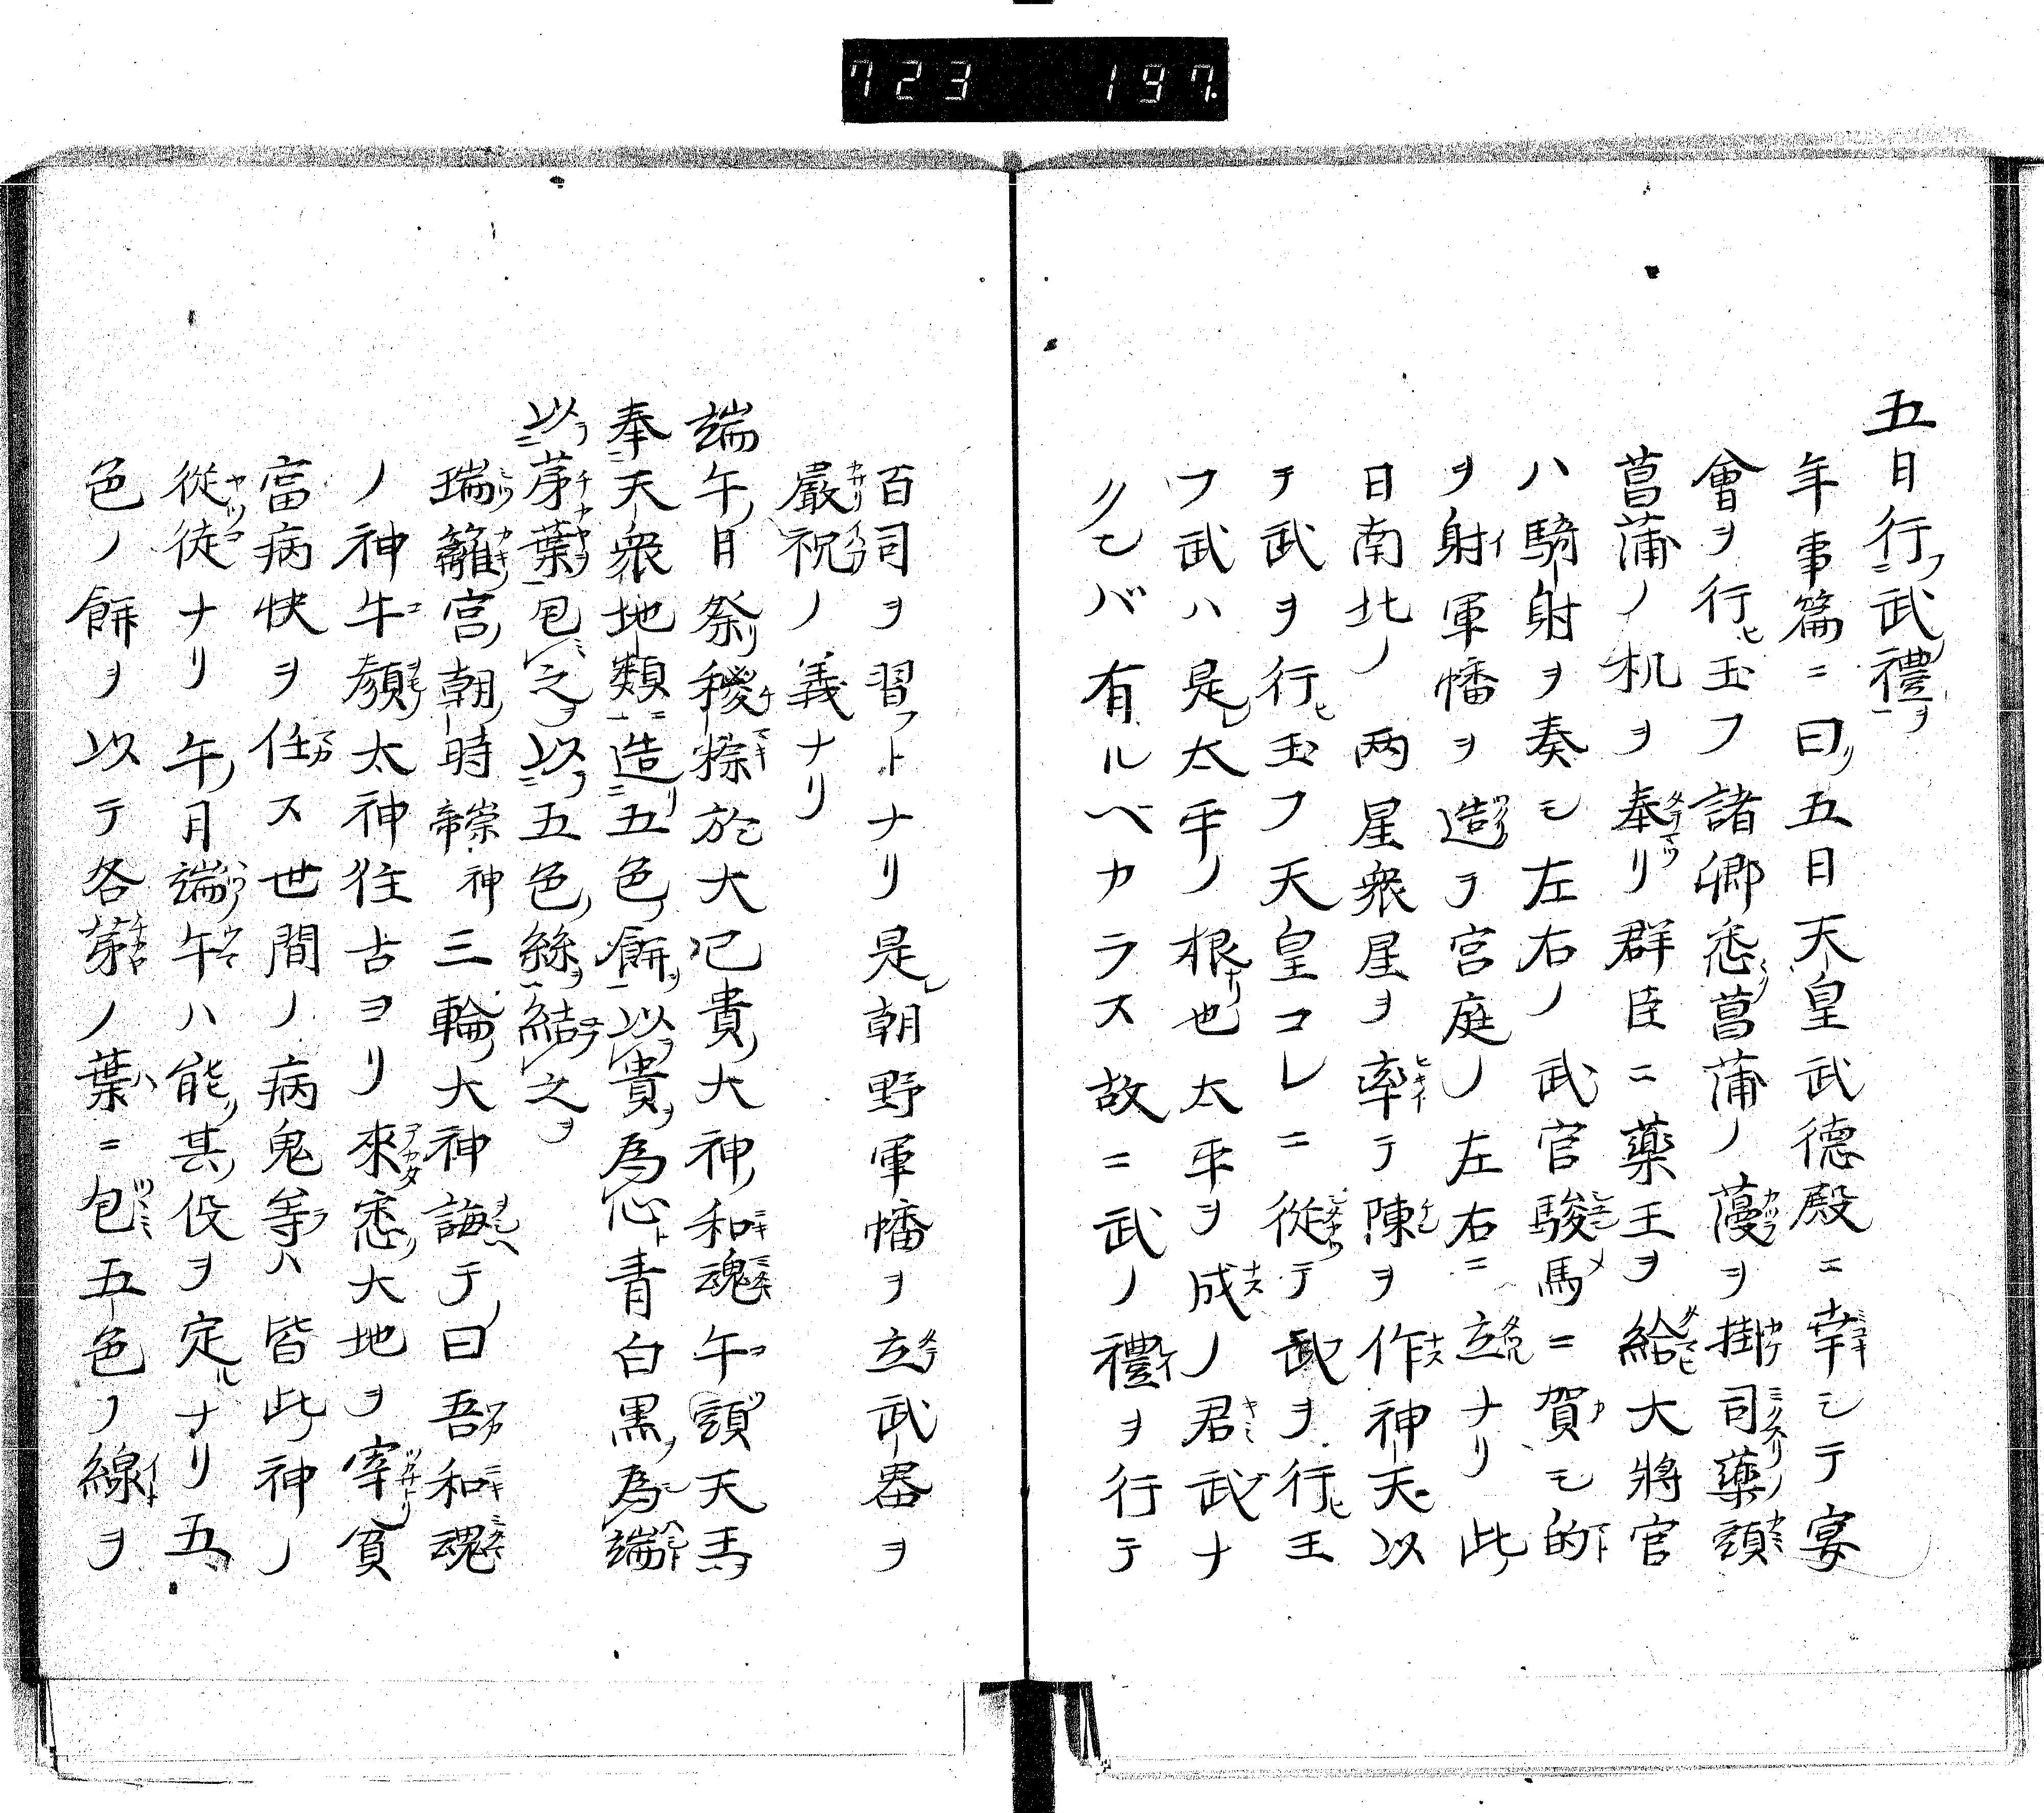 723 197.
五日行武禮
年事篇ニ曰五日天皇武德殿ニ幸シテ宴
會ヲ行ヒ玉フ諸卿悉菖蒲ノ蘰ヲ掛司藥頭
菖蒲ノ机ヲ奉リ群臣ニ藥王ヲ給大將官
ハ騎射ヲ奏シ左右ノ武官駿馬ニ賀シ的
ヲ射軍幡ヲ造テ宮庭ノ左右ニ立ナリ此
日南北ノ両星衆星ヲ率テ陳ヲ作神天以
テ武ヲ行ヒ玉フ天皇コレニ從テ武ヲ行ヒ王
フ武ハ是太平ノ根也太平ヲ成ノ君武ナ
クンバ有ルベカラス故ニ武ノ禮ヲ行テ
百司ヲ習フトナリ是朝野軍幡ヲ立武器ヲ
嚴祝ノ義ナリ
端午月祭稷粽於大己貴大神和魂午頭天王
奉天衆地類造五色餅以貴為心青白黒為端
以茅葉包之以五色絲結之
瑞籬宮朝時崇神帝三輪大神誨テ曰吾和魂
ノ神牛顏太神往古ヨリ來悉大地ヲ宰貧
富病快ヲ任ス世間ノ病鬼等ハ皆此神ノ
從徒ナリ午月端午ハ能其役ヲ定ナリ五
色ノ餅ヲ以テ各茅ノ葉ニ包五色ノ線ヲ